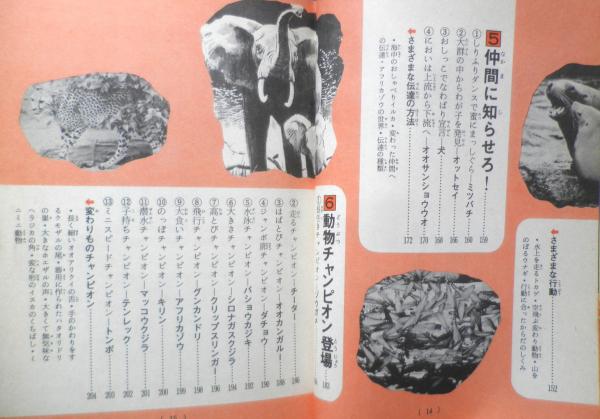 ↓さまざまな行動
・水上を走るトカゲ・空飛ぶ変わり動物・山を
のぼるウナギ・行動に合ったからだのしくみ 152
5 仲間に知らせろ! 159
①しりふりダンスで蜜にまっしぐら―ミツバチ 160
②大群の中からわが子を発見―オットセイ 166
③おしっこでなわばり宣言―犬
④においは上流から下流へ―オオサンショウウオ 170
↓さまざまな伝達の方法 172
・海中のおしゃべりイルカ・変わった仲間へ
の伝達・アフリカゾウの世界・伝達の種類
(14)
6 動物チャンピオン登場
②走るチャンピオン―チーター 186
③はばとびチャンピオン―オオカンガルー 188
④ジャンボ卵チャンピオン―ダチョウ 190
⑤水泳チャンピオン―バショウカジキ 192
⑥大きさチャンピオン―シロナガスクジラ 194
⑦高とびチャンピオン―クリップスリンガー 196
⑧飛行チャンピオン―グンカンドリ 198
⑨大食いチャンピオン―アフリカゾウ 199
⑩のっぽチャンピオン―キリン 200
⑪潜水チャンピオン―マッコウクジラ 201
⑫子持ちチャンピオン―テンレック 202
⑬ミニスピードチャンピオン―トンボ 203
↓変わりものチャンピオン 204
・長く細いオオアリクイの舌・手のかわりをす
るクモザルの尾・器用に作られたハタオリドリ
の巣・大きなホエザルの声・大きくて無気味な
ヘラジカの角・変な形のイスカのくちばし・ミ
ニミニ動物